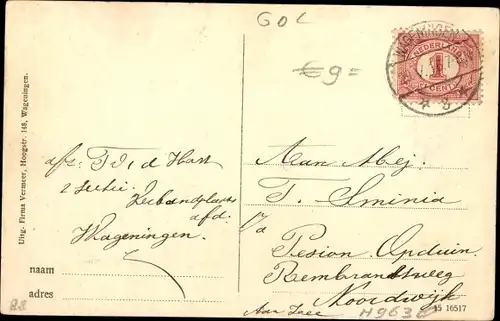 GOL
€ 9 =
WAGENINGEN
NEDERLAND
1
CENT
3
Uitg. Firma Vermeer, Hoogstr. 148, Wageningen.
afz.
2 sectie.
afd.
Wageningen.
naam
adres
Aan Mej.
T. Sminia
Pesion Opduin
Rembrandtweg
Noordwijk
Aan Zee
15 16517